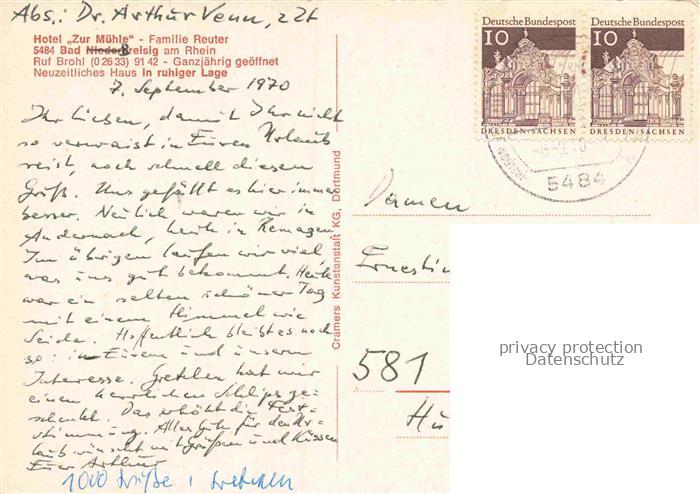 Abs.: Dr. Arthur Venn, z Zt
Hotel „Zur Mühle" - Familie Reuter
5484 Bad Niederbreisig am Rhein
Ruf Brohl (0 26 33) 91 42 - Ganzjährig geöffnet
Neuzeitliches Haus in ruhiger Lage
7. September 1970
Ihr Lieben, damit Ihr nicht
so verwaist in Euren Urlaub
reist, noch schnell diesen
Gruß. Uns gefällt es hier immer
besser. Neulich waren wir in
Andernach, heute in Remagen
Im übrigen laufen wir viel,
was uns gut bekommt. Heute
war ein selten schöner Tag
mit einem Himmel wie
Seide. Hoffentlich bleibt es noch
so: in Eurem und unserm
Interesse. Gretchen hat mir
einen herrlichen Schlips ge-
schenkt. Das erhöht die Fest-
stimmung. Alles Gute für den Ur-
laub wünscht mit Grüßen und Küssen
Euer Arthur
1000 Grüße, Gretchen
Cramers Kunstanstalt KG, Dortmund
Deutsche Bundespost
10
DRESDEN/SACHSEN
Deutsche Bundespost
10
DRESDEN/SACHSEN
5484
Damen
Ernestin
581
privacy protection
Datenschutz